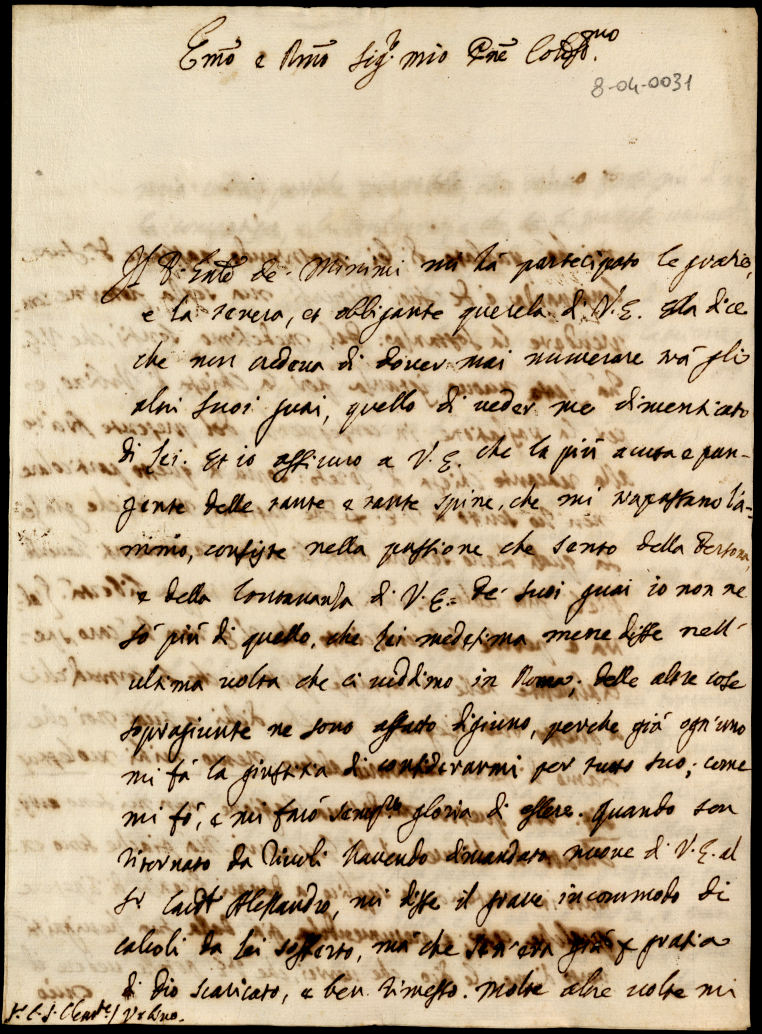 Em̃o e Rm̃o Sig.r mio Pñe Col.mo
8-04-0031
Il P. de Minimi mi hà partecipato le gratie,
e la severa, et obbligante querela di V.E. Ella dice
che non credeva di dover mai numerare trà gli
altri suoi guai, quello di veder me dimenticato
di Lei. Et io assicuro a V.E. che la più acuta e pun-
gente delle tante e tante spine, che mi trapassano l'a-
nimo, consiste nella passione che sento della Persona,
e della lontananza di V.E. De' suoi guai io non ne
sò più di quello, che Lei medesima mene disse nell'
ultima volta che ci veddimo in Roma; delle altre cose
sopragiunte ne sono affatto digiuno, perche già ogn'uno
mi fà la giustitia di considerarmi per tutto suo; come
mi fò, e mi farò semp.re gloria di essere. Quando son
ritornato da Tivoli havendo dimandato nuove di V.E. al
Sr Card.l Alessandro, mi disse il grave incommodo di
calcoli da Lei sofferto, mà che sen'era già p gratia
di Dio scaricato, e ben rimesso. Molte altre volte mi
S.r C. S. Clem.te / Urbino.